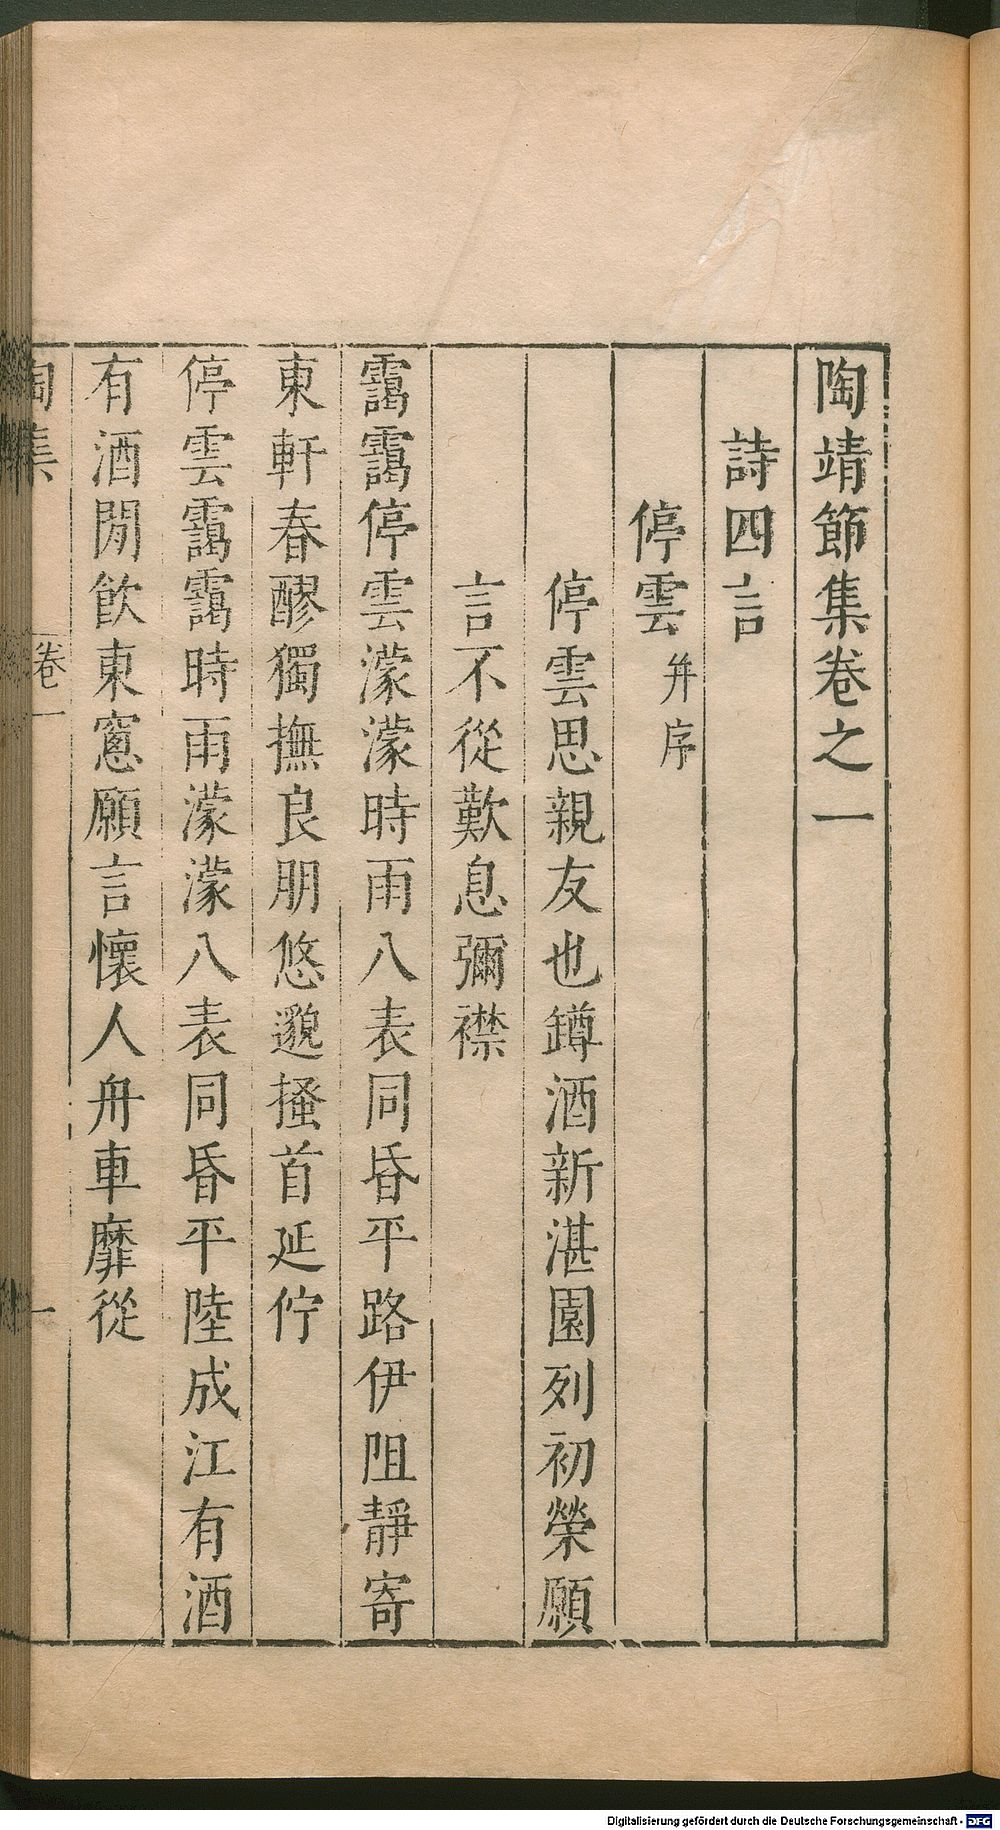 陶靖節集卷之一
詩四言
停雲 并序
停雲思親友也罇酒新湛園列初榮願
言不從歎息彌襟
靄靄停雲濛濛時雨八表同昏平路伊阻靜寄
東軒春醪獨撫良朋悠邈搔首延佇
停雲靄靄時雨濛濛八表同昏平陸成江有酒
有酒閒飲東窻願言懷人舟車靡從
陶集 卷一 一
Digitalisierung gefördert durch die Deutsche Forschungsgemeinschaft - DFG